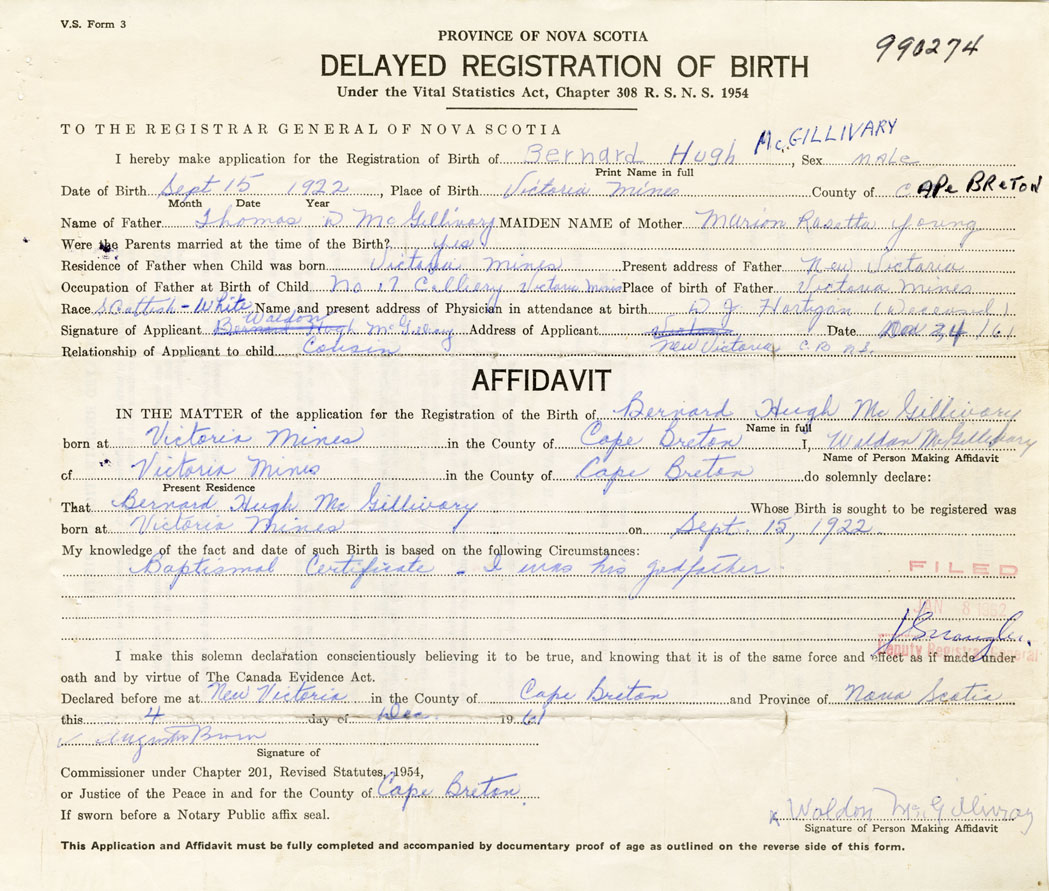 V.S. Form 3
PROVINCE OF NOVA SCOTIA
990274
DELAYED REGISTRATION OF BIRTH
Under the Vital Statistics Act, Chapter 308 R. S. N. S. 1954
TO THE REGISTRAR GENERAL OF NOVA SCOTIA
I hereby make application for the Registration of Birth of Bernard Hugh McGILLIVARY, Sex MALe
Print Name in full
Date of Birth Sept 15 1922, Place of Birth Victoria Mines County of CAPe BReTON
Month Date Year
Name of Father Thomas D McGillivary MAIDEN NAME of Mother Marion Rosetta Young
Were the Parents married at the time of the Birth? yes
Residence of Father when Child was born Victoria Mines Present address of Father New Victoria
Occupation of Father at Birth of Child No 17 Colliery Victoria Mines Place of birth of Father Victoria Mines
Race Scottish - White Name and present address of Physician in attendance at birth D J Hartigan (Deceased)
Signature of Applicant Waldon Hugh McGillvay Address of Applicant Date 24/61
Relationship of Applicant to child Cousin New Victoria C.B. N.S.
AFFIDAVIT
IN THE MATTER of the application for the Registration of the Birth of Bernard Hugh Mc Gillivary
Name in full
born at Victoria Mines in the County of Cape Breton I, Waldan McGillivary
Name of Person Making Affidavit
of Victoria Mines in the County of Cape Breton do solemnly declare:
Present Residence
That Bernard Hugh Mc Gillivary Whose Birth is sought to be registered was
born at Victoria Mines on Sept. 15, 1922
My knowledge of the fact and date of such Birth is based on the following Circumstances:
Baptismal Certificate - I was his godfather
FILED
JAN 8 1962
Deputy Registrar General
I make this solemn declaration conscientiously believing it to be true, and knowing that it is of the same force and effect as if made under
oath and by virtue of The Canada Evidence Act.
Declared before me at New Victoria in the County of Cape Breton and Province of Nova Scotia
this 4 day of Dec 1961
Signature of
Commissioner under Chapter 201, Revised Statutes, 1954,
or Justice of the Peace in and for the County of Cape Breton
If sworn before a Notary Public affix seal.
x Waldon McGillivray
Signature of Person Making Affidavit
This Application and Affidavit must be fully completed and accompanied by documentary proof of age as outlined on the reverse side of this form.